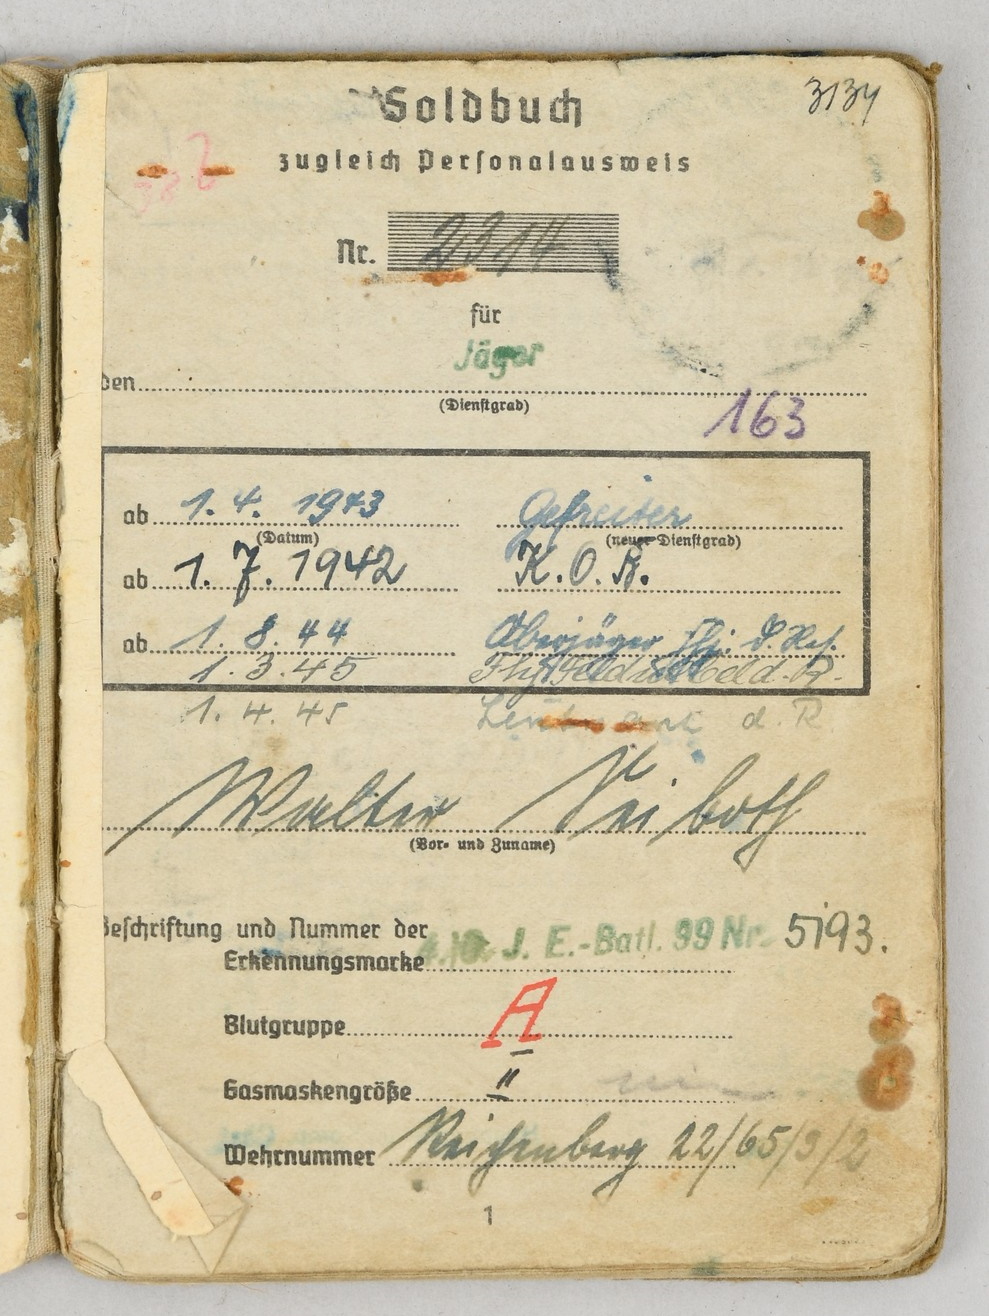 3134
Soldbuch
zugleich Personalausweis
Nr. 2314
für
Jäger
den
(Dienstgrad)
163
ab 1. 4. 1943 Gefreiter
(Datum) (neuer Dienstgrad)
ab 1. 7. 1942 K. O. B.
ab 1. 8. 44 Oberjäger d. Res.
1. 3. 45 d. R.
1. 4. 45 Leutnant d. R
Walter Seiboth
(Vor- und Zuname)
Beschriftung und Nummer der
Erkennungsmarke J. E.-Batl. 99 Nr. 5193.
Blutgruppe A
Gasmaskengröße II
Wehrnummer Reichenberg 22/65/3/2
1